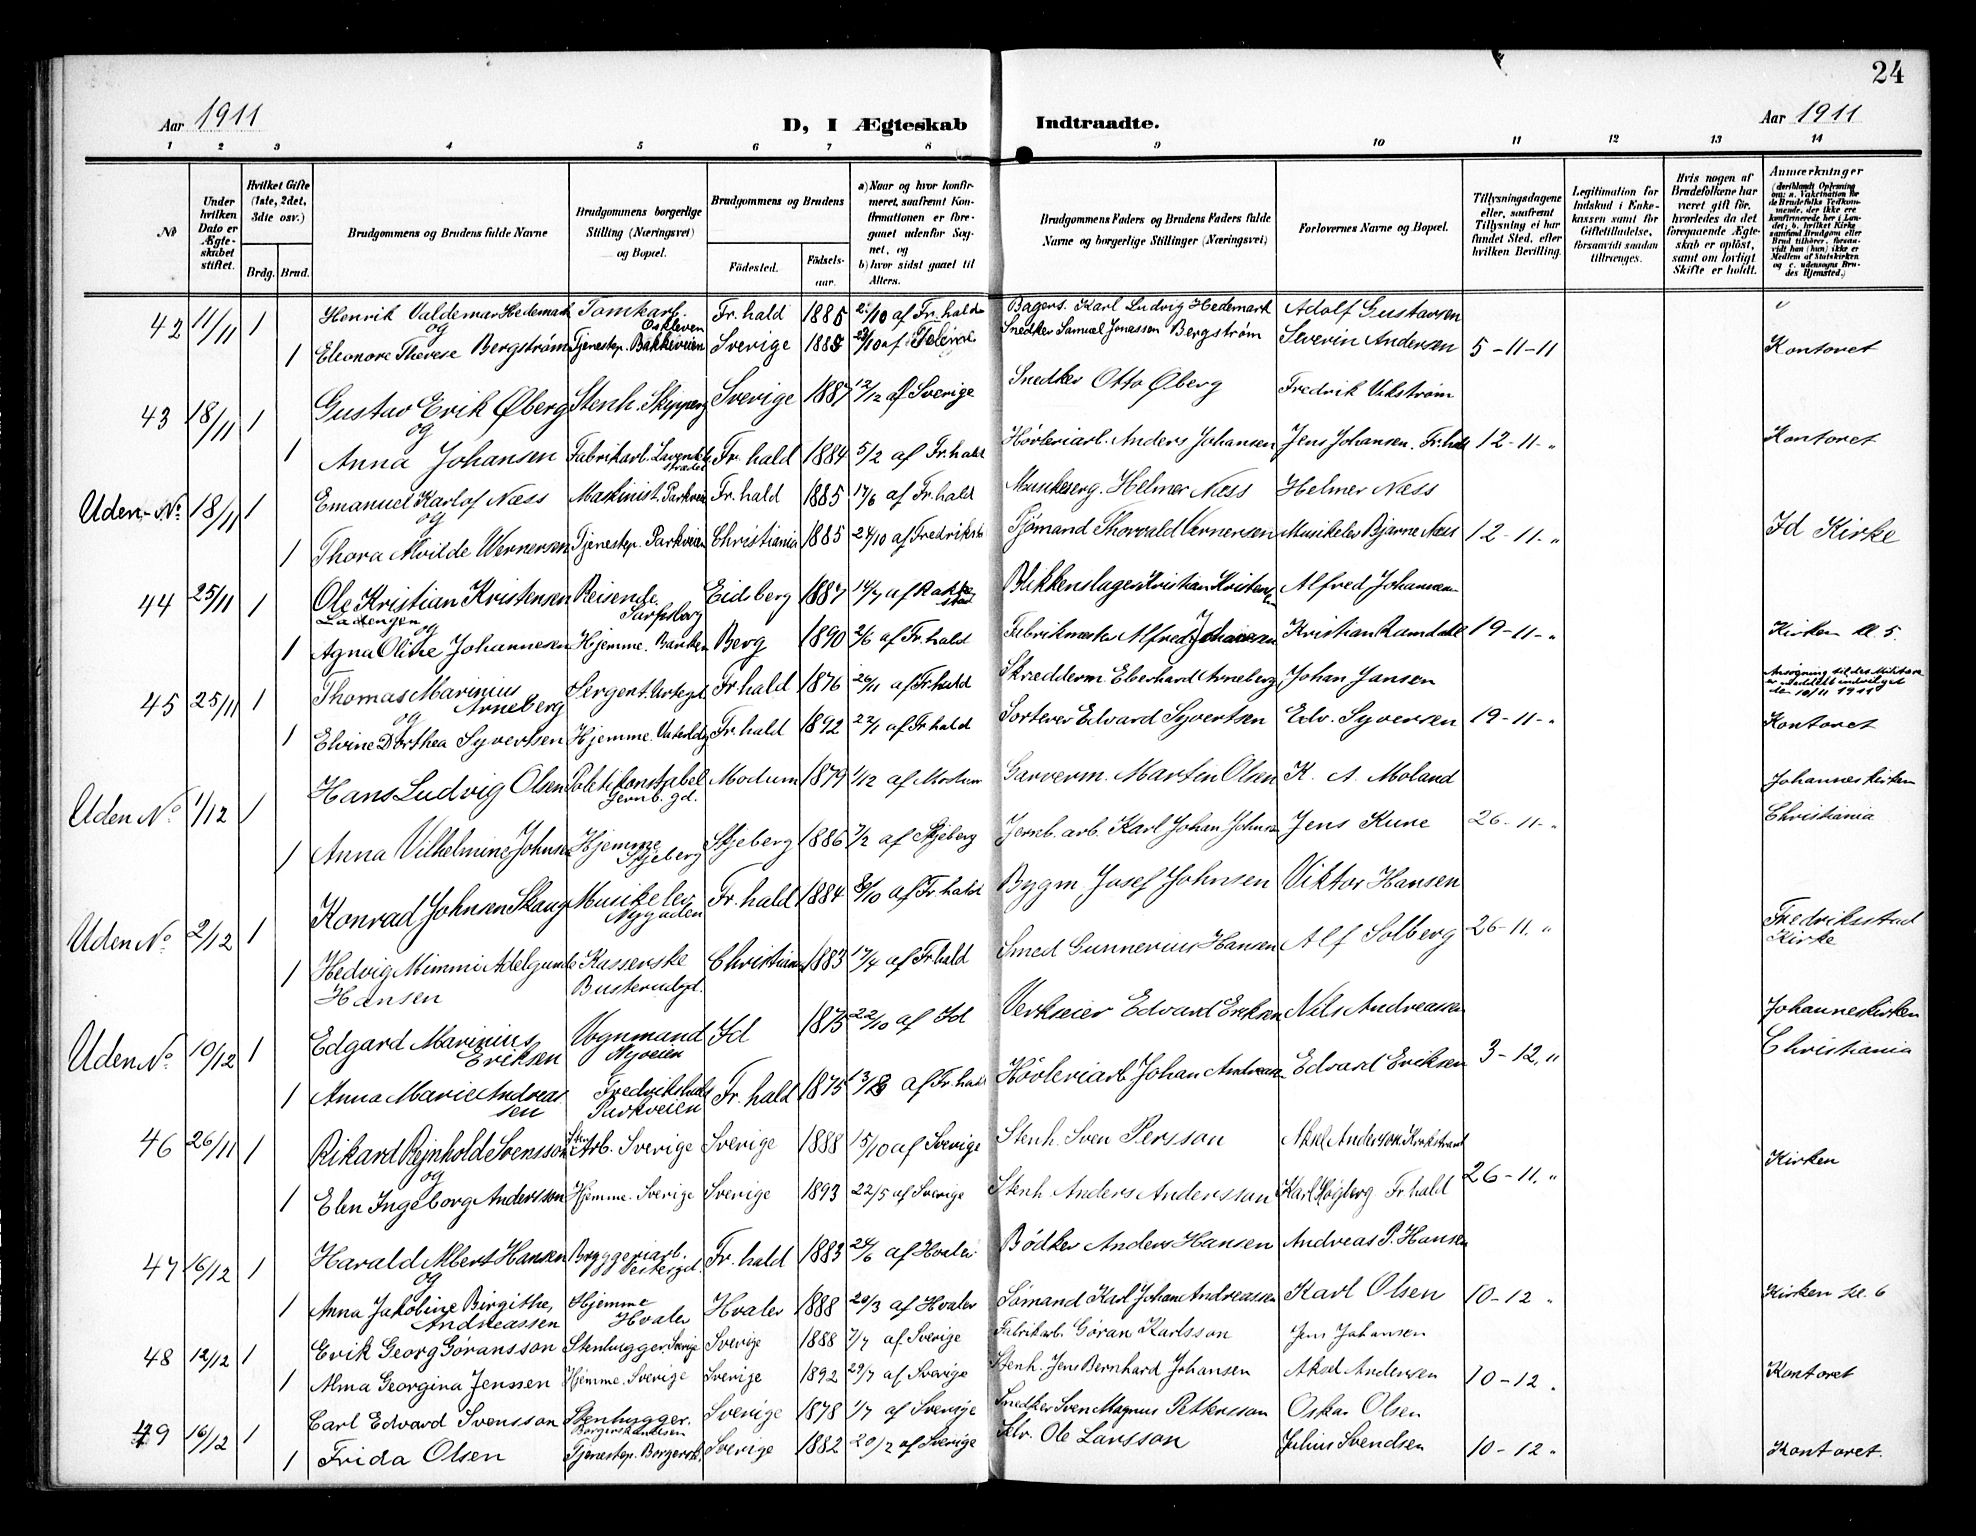 24
Aar 1911
D, I Ægteskab Indtraadte.
Aar 1911
1 2 3 4 5 6 7 8 9 10 11 12 13 14
No
Under hvilken Dato er Ægteskabet stiftet.
Hvilket Gifte (1ste, 2det, 3dte osv.)
Brdg. Brud.
Brudgommens og Brudens fulde Navne
Brudgommens borgerlige Stilling (Næringsvei) og Bopæl.
Brudgommens og Brudens
Födested. Födsels-aar.
a) Naar og hvor konfirmeret, saafremt Konfirmationen er foregaaet udenfor Sognet, og
b) hvor sidst gaaet til Alters.
Brudgommens Faders og Brudens Faders fulde Navne og borgerlige Stillinger (Næringsvei)
Forlovernes Navne og Bopæl.
Tillysningsdagene eller, saafremt Tillysning ei har fundet Sted, efter hvilken Bevilling.
Legitimation for Indskud i Enkekassen samt for Giftetilladelse, forsaavidt saadan tiltrænges.
Hvis nogen af Brudefolkene har været gift för, hvorledes da det foregaaende Ægteskab er oplöst, samt om lovligt Skifte er holdt.
Anmærkninger
42 11/11 1 Henrik Valdemar Hedemark Tomtearb. Oskleven Fr.hald 1885 /10 af Fr.hald Bagers. Karl Ludvig Hedemark Adolf Gustavsen
og
1 Eleonore Therese Bergstrøm Tjenestep. Bakkeveien Sverige 1885 /10 af Snedker Samuel Jonasson Bergstrøm Severin Andersen 5-11-11 Kontoret
43 18/11 1 Gustav Erik Øberg Stenh. Sverige 1887 12/12 af Sverige Snedker Otto Øberg Fredrik Vikstrøm
og
1 Anna Johansen Fabrikarb. Fr.hald 1884 5/2 af Fr.hald Høvleriarb. Anders Johansen Jens Johansen. Fr.hald 12-11-„ Kontoret
Uden No. 18/11 1 Emanuel Karlof Næss Maskinist. Parkvei Fr.hald 1885 17/6 af Fr.hald Helmer Næss Helmer Næss
og
1 Thora Alvilde Wernersen Tjenestep. Parkveien Christiania 1885 24/10 af Fredrikst. Sjømand Thorvald Wernersen Musikelev Bjarne Næss 12-11-„ Id Kirke
44 25/11 1 Ole Kristian Kristensen Reisende. Sarpsborg Eidsberg 1887 14/7 af Rakkestad Blikkenslager Kristian Kristensen Alfred Johansen
Ladengen
og
1 Agna Olise Johannesen Hjemme. Banken Berg 1890 2/6 af Fr.hald Alfred Johansen Kristian Ramdahl 19-11-„ Kirken kl. 5.
45 25/11 1 Thomas Marinius Arneberg Sergent. Fr.hald 1876 26/11 af Fr.hald Skrædderm Eberhard Arneberg Johan Jansen
den 10/11 1911
og
1 Elvine Dorthea Syvertsen Hjemme. Fr.hald 1892 22/11 af Fr.hald Sorterer Edvard Syvertsen Edv. Syversen 19-11-„ Kontoret
Uden No 1/12 1 Hans Ludvig Olsen Politikonstabel Jernb. gd. Modum 1879 1/12 af Modum Garverm. Martin Olsen K. A. Moland Johanneskirken
1 Anna Vilhelmine Johnsen Hjemme Skjeberg Skjeberg 1886 7/2 af Skjeberg Jernb. arb. Karl Johan Johnsen Jens Kure 26-11-„ Christiania
Uden No 2/12 1 Konrad Johnsen Skaug Musikelev Nygaden Fr.hald 1884 30/10 af Fr.hald Bygm Josef Johnsen Viktor Hansen Fredriksstad Kirke
1 Hedvig Mimmi Adelgunde Hansen Kasserske Busterudgd. Christiania 1883 17/4 af Fr.hald Smed Gunnerius Hansen Alf Solberg 26-11.„
Uden No. 10/12 1 Edgard Marinius Eriksen Vognmand Nyveien Id 1875 22/10 af Id Verkseier Edvard Eriksen Nils Andreassen Johanneskirken
1 Anna Marie Andreassen Fredrikshald Parkveien Fr.hald 1875 af Fr.hald Høvleriarb Johan Andreassen Edvard Eriksen 3-12.„ Christiania
46 26/11 1 Rikard Rejnhold Svensson Arb. Sverige Sverige 1888 15/10 af Sverige Stenh. Sven Persson Aksel Anderson
og
1 Elen Ingeborg Andersson Hjemme. Sverige Sverige 1893 22/5 af Sverige Stenh. Anders Andersson Karl Høgberg Fr.hald 26-11.„ Kirken
47 16/12 1 Harald Albert Hansen Bryggeriarb. Fr.hald 1883 24/6 af Hvaler Bødker Anders Hansen Andreas P. Hansen
og
1 Anna Jakobine Birgithe, Andreassen Hjemme Hvaler Hvaler 1888 20/3 af Hvaler Sømand Karl Johan Andreassen Karl Olsen 10-12 „ Kirken kl. 6
48 12/12 1 Erik Georg Gøransson Stenhugger Sverige Sverige 1888 7/7 af Sverige Fabrikarb. Gøran Karlsson Jens Johansen
1 Alma Georgina Jenssen Hjemme. Sverige Sverige 1892 29/7 af Sverige Stenh. Jens Bernhard Johansen Aksel Andersen 10-12 „ Kontoret
49 16/12 1 Carl Edvard Svensson Stenhugger. Sverige 1878 1/7 af Sverige Snedker Sven Magnus Pettersson Oskar Olsen
1 Frida Olsen Tjenestep. Borgersk. Sverige 1882 20/2 af Sverige Ole Larsson Julius Svendsen 10-12 „ Kontoret.